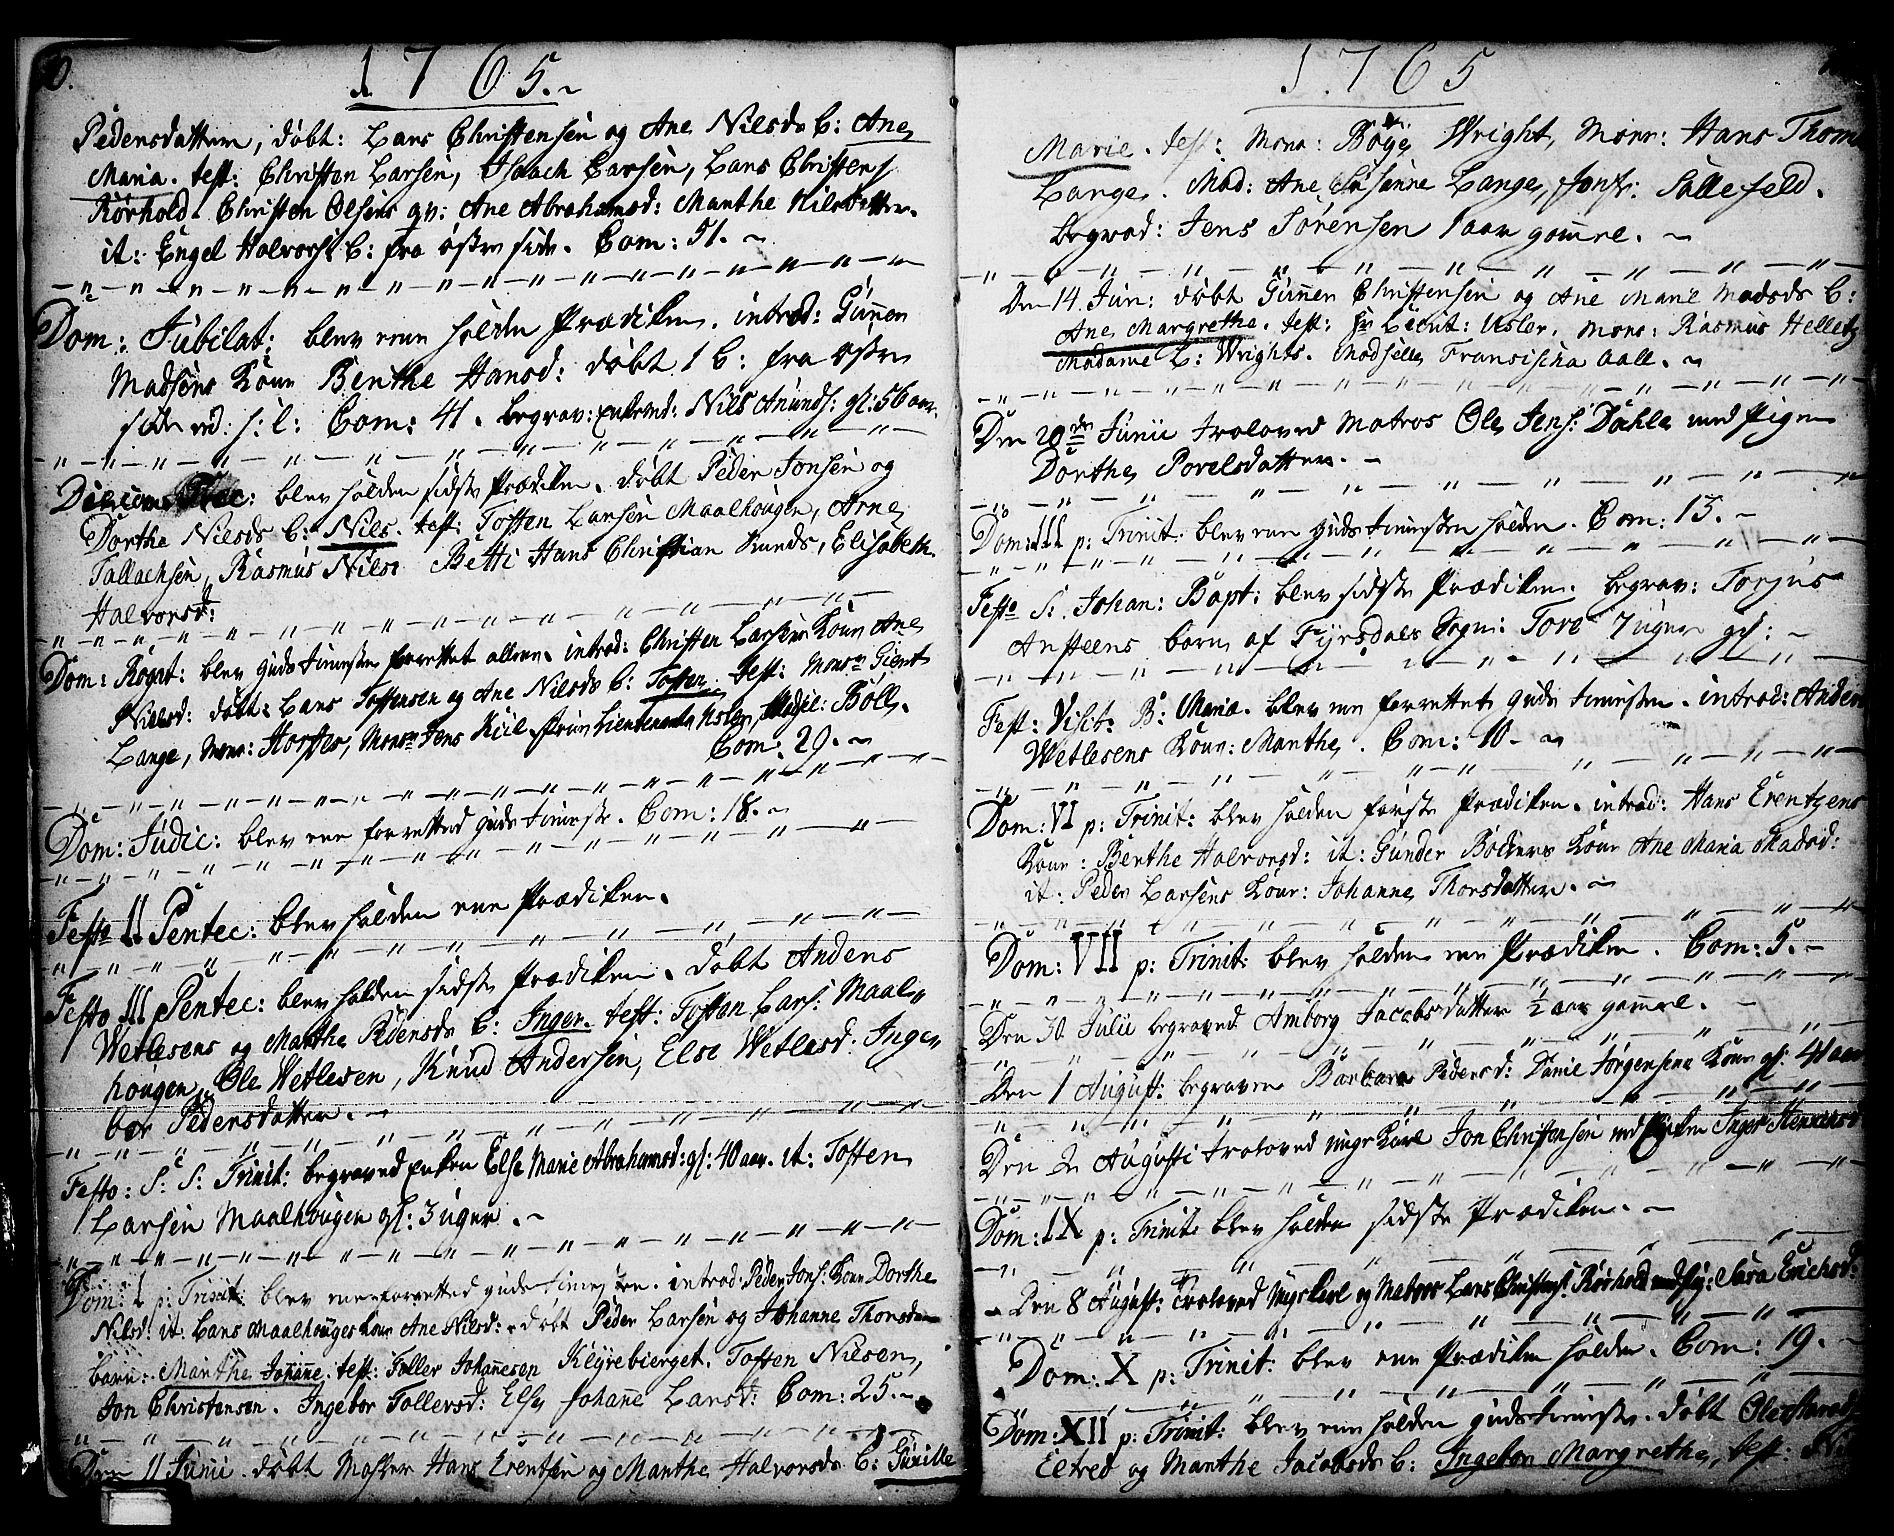 0.
1765.~
Pedersdatter, døbt: Lars Christensen og Ane Nilsds B: Ane
Maria. test: Christen Larsen, Isaach Larsen, Lars Christens
Rørhold. Christen Olsens qv: Ane Abrahamsd: Marthe Nilsdatter.
it: Engel Halvorss B: fra østre side. Com: 51. ~
Dom: Jubilat: blev een holden Prædiken. introd: Gunnar
Madsens Kone Benthe Hansd: døbt 1 B: fra østre
side ved: s: l: Com: 41. begrav: Nils Anunds: gl: 56 aar.
blev holden sidste Prædiken. døbt Peder Jonsen og
Dorthe Nilsds B: Nils. test: Tosten Larsen Maalhougen, Arne
Tallachsen, Rasmus Nilse Betti Hans Christian Kunds, Elisabeth
Halvorsd:
Dom: Rogat: blev guds tienesten forrettet allene. introd: Christen Larsens Kone Ane
Nielsd: døbt: Lars Tostensen og Ane Nilsds B: Tosten. test: Monsr Gient
Lange, Monsr: Horster, Monsr Jens Kiil, Lieutenants Usler, Madsel: Bøll.
Com: 29. ~
Dom: Judic: blev een forretted guds tieneste. Com: 18. ~
Festo II Pentec: blev holden een Prædiken.
Festo III Pentec: blev holden sidste Prædiken. døbt Anders
Wetlesens og Marthe Pedersds B: Inger. test: Tosten Lars: Maal-
hougen, Ole Wetlesen, Knud Andersen, Else Wetlesd: Inge-
bor Pedersdatter. ~
Festo: S: S: Trinit: begraved Enken Else Marie Abrahamsd: gl: 40 aar. it: Tosten
Larsen Maalhougen gl: 3 uger. ~
Dom: I p: Trinit: blev een forretted guds tienesten. introd: Peder Jons: Kone Dorthe
Nilsd: it: Lars Maalhouges kone Ane Nilsd: døbt Peder Larsen og Johanne Thorsds
barn: Marthe Johanne. test: Foller Johannesen Kleyrebierget. Tosten Nilsen,
Jon Christensen. Ingebor Follersd: Else Johanne Larsd: Com: 25. ~
Den 11 Junii døbt Mosler Hans Erentsen og Marthe Halvorsds B: Gunille
1765
Marie. test: Monsr: Bøye Wright, Monsr: Hans Thom
Lange. Mad: Ane Susanne Lange, Jonfr: Sallefeld.
begrav: Jens Sørensen 1 aar gammel. ~
Den 14 Jun: døbt Gunner Christensen og Ane Marie Madsds B:
Ane Margrethe. test: Hr Lieut: Usler. Monsr: Rasmus Helletz
Madame L: Wrights. Madselle Fransischa Aall. ~
Den 20de Junii troloved Matros Ole Jens: Dahle med Pigen
Dorthe Povelsdatter. ~
Dom: III p: Trinit: blev een guds tienesten holden. Com: 13. ~
Festo S: Johan: Bapt: blev sidste Prædiken. begrav: Torjus
Ansteens barn af Fyrsdals Sogn: Tore 7 uger gl: ~
Fest: Visit: B: Maria. blev een forrettet guds tienesten. introd: Anders
Wetlesens Kone: Marthe. Com: 10. ~
Dom: VI p: Trinit: blev holden første Prædiken. introd: Hans Erentzens
Kone: Benthe Halvorsd: it: Gunder Bødkers Kone Ane Maria Madsd:
it: Peder Larsens Kone: Johanne Thorsdatter. ~
Dom: VII p: Trinit: blev holden een Prædiken. Com: 5. ~
Den 30 Julii begraved Amborg Jacobsdatter ½ aar gammel. ~
Den 1 August: begraven Barbara Pedersd: Danie Jørgensens Kone gl: 41 aar
Den 2 Augusti troloved unge Karl Jon Christensen med Pigen Inger
Dom: IX p: Trinit: blev holden sidste Prædiken. ~
Den 8 August: Troloved Ungkarl og Matros Lars Christens: Rørhold med Pig: Sara Erichsd:
Dom: X p: Trinit: blev een Prædiken holden. Com: 19. ~
Dom: XII p: Trinit: blev een holden guds tieneste. døbt Ole
Eelred og Marthe Jacobsds B: Ingebor Margrethe, test: